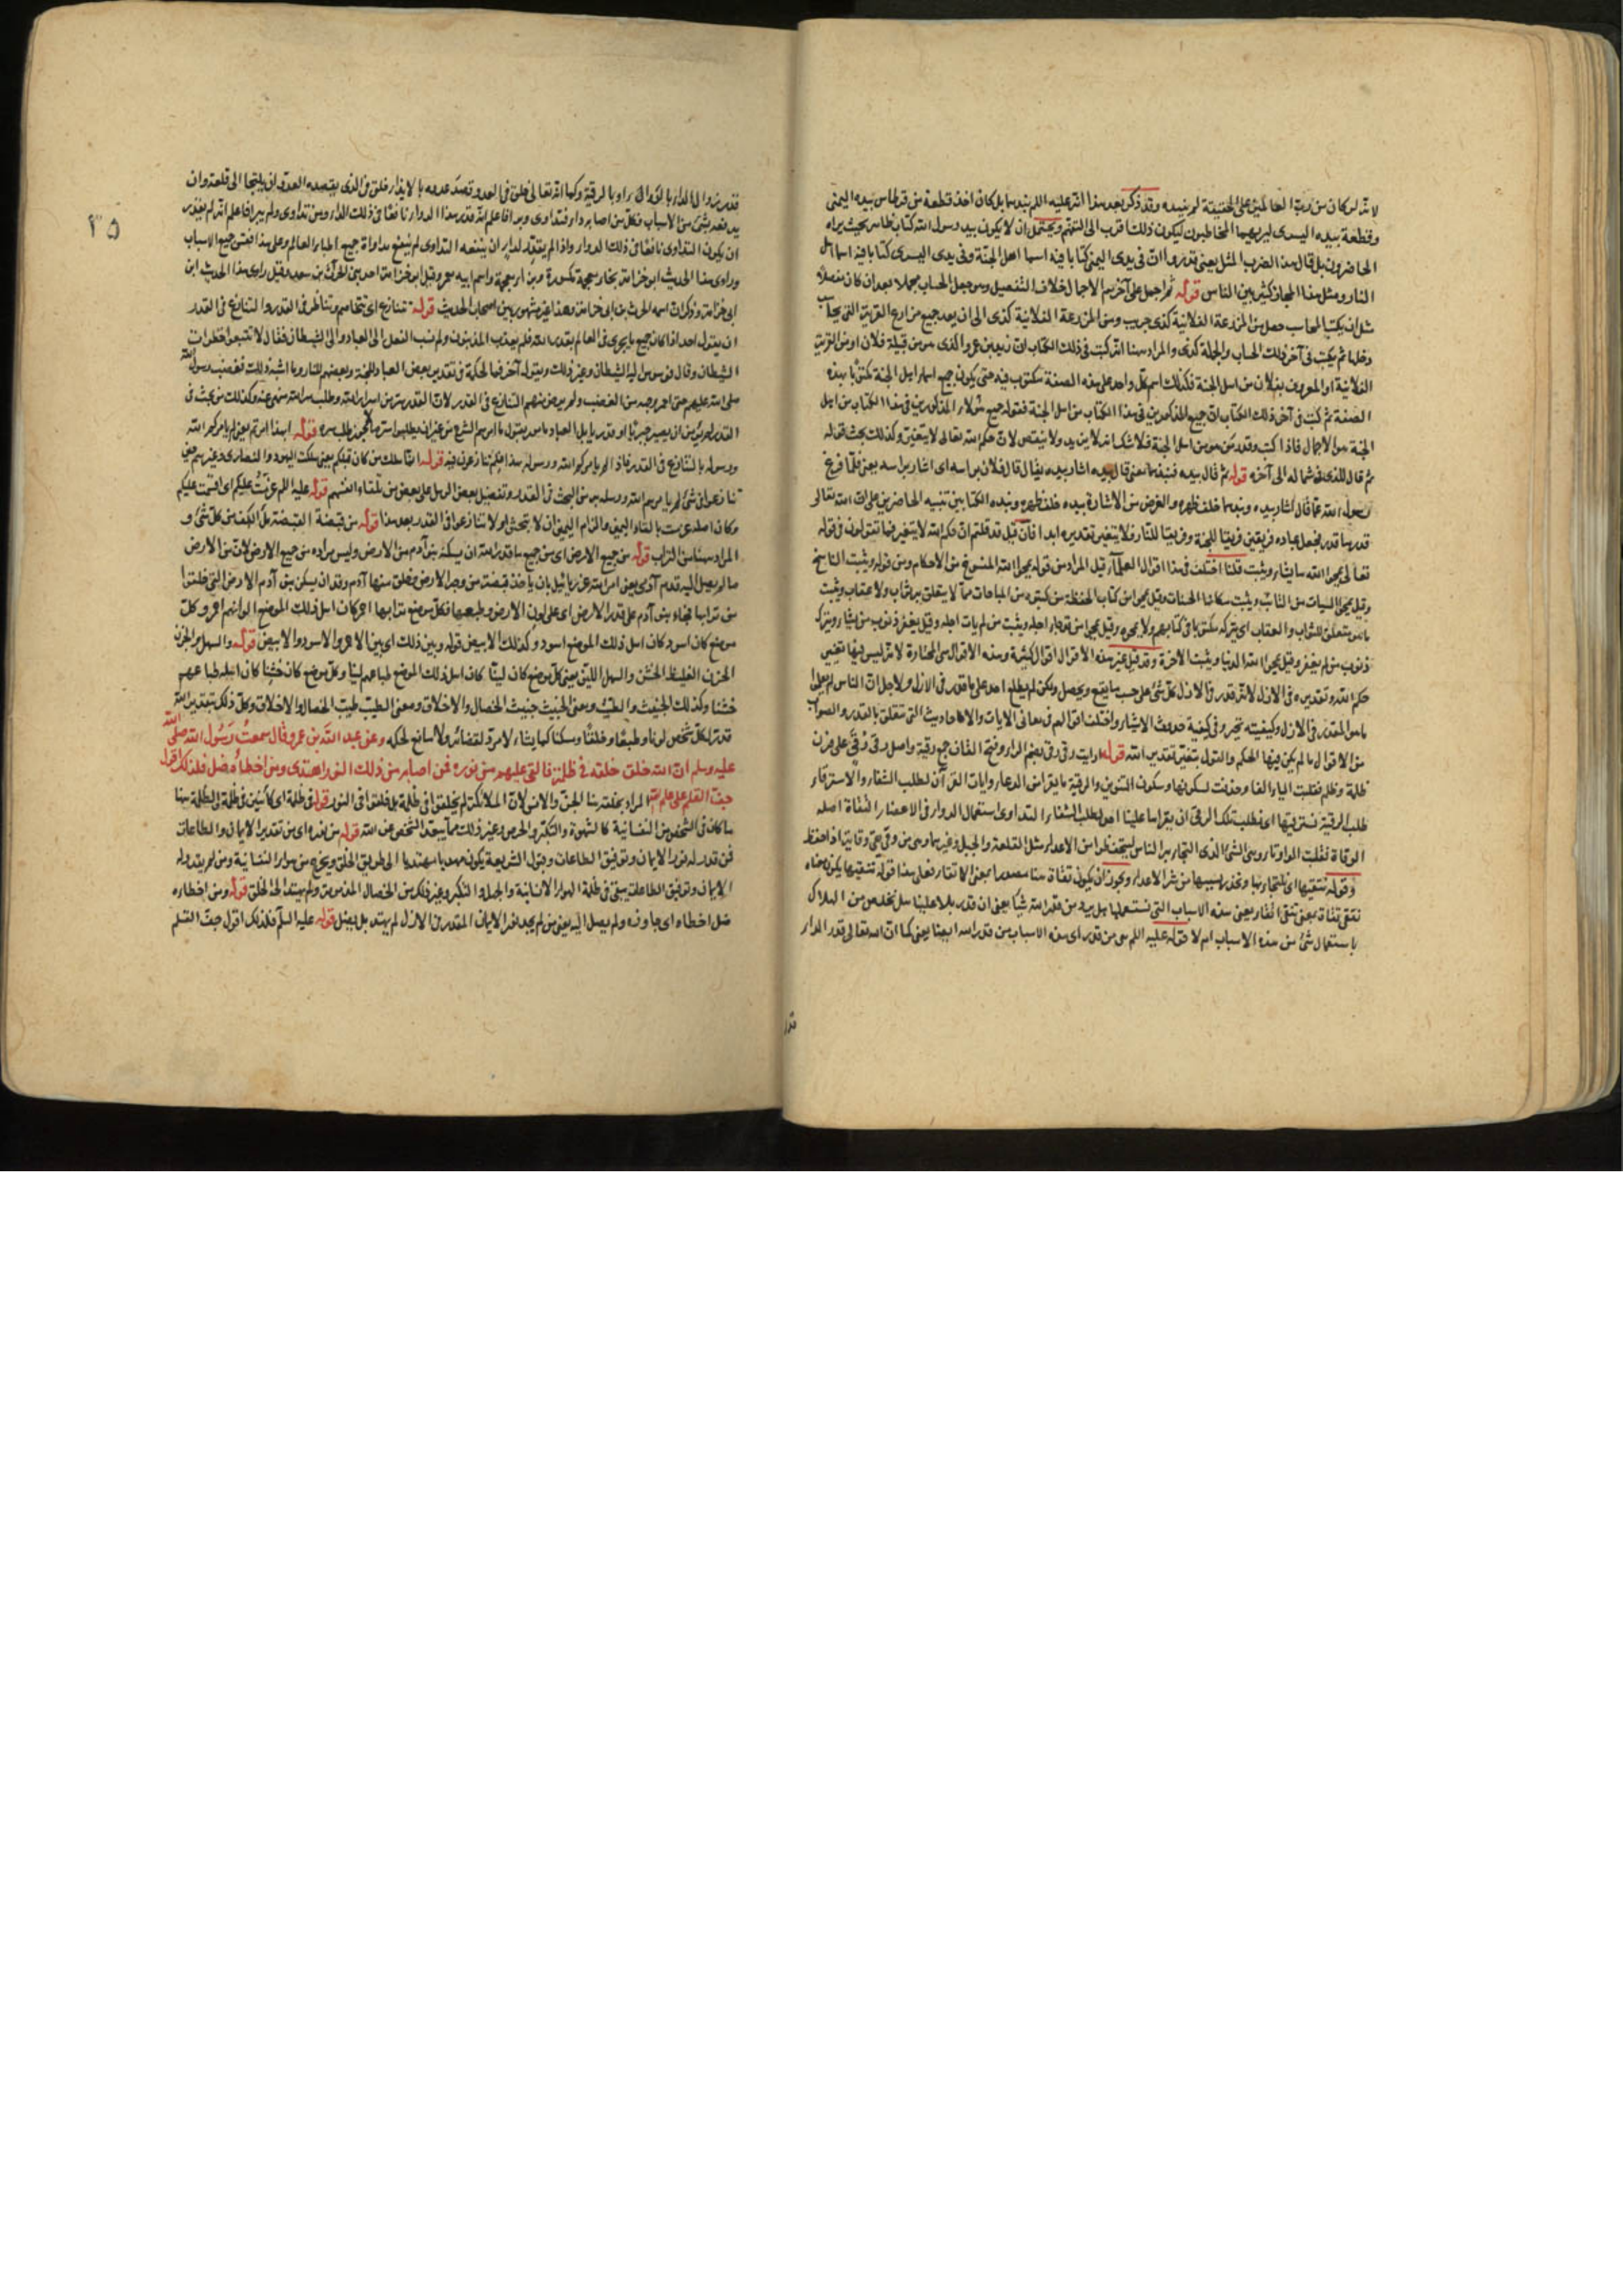 لانه لو كان من رب العالمين على الحقيقة لم ينبذه وقد ذكر بعد هذا انه عليه السلم نبذهما بل كان اخذ قطعة من قرطاس بيده اليمنى
وقطعة بيده اليسرى ليريهما المخاطبون ليكون ذلك اقرب الى التفهم ويحتمل ان لا يكون بيد رسول الله كتاب ظاهر بحيث يراه
الحاضرون بل قال هذا لضرب المثل يعنى قدروا ان فى يدى اليمنى كتابا فيه اسماء اهل الجنة وفى يدى اليسرى كتابا فيه اسماء اهل
النار ومثل هذا المجاز كثير بين الناس قوله ثم اجمل على آخرهم الاجمال خلاف التفصيل وهو جعل الحساب مجملا بعد ان كان مفصلا
مثل ان يكتب المحاسب حصل من المزرعة الفلانية كذى جريب ومن المزرعة الفلانية كذى الى ان يعد جميع مزارع القرية التى
دخلها ثم يكتب فى آخر ذلك الحساب والجملة كذى والمراد هنا انه كتب فى ذلك الكتاب ان زيد بن عمرو الذى هو من قبيلة فلان او من القرية
الفلانية او المعروف بفلان من اهل الجنة فكذلك اسم كل واحد على هذه الصفة مكتوب فيه حتى يكون جميع اسماء اهل الجنة مكتوبا بهذه
الصفة ثم كتب فى آخر ذلك الكتاب ان جميع المذكورين فى هذا الكتاب من اهل الجنة فقوله جميع هؤلاء المذكورين فى هذا الكتاب من اهل
الجنة هو الاجمال فاذا كتب وقدر من هو من اهل الجنة فلا شك انه لا يزيد ولا ينقص لان حكم الله تعالى لا يتغير وكذلك بحث قوله
ثم قال للذى فى شماله الى آخره قوله ثم قال بيده فنبذهما معنى قال بيده اشار بيده يقال قال فلان براسه اى اشار براسه يعنى فلما فرغ
رسول الله عما قال اشار بيده ونبذهما خلف ظهره والغرض من الاشارة بيده خلف ظهره ونبذه الكتابين تنبيه الحاضرين على ان الله تعالى
قدر ما قدر فجعل عباده فريقين فريقا للجنة وفريقا للنار فلا يتغير تقديره ابدا فان قيل قد قلتم ان حكم الله لا يتغير فما تقولون فى قوله
تعالى يمحو الله ما يشاء ويثبت قلنا اختلف فى هذا اقوال العلماء قيل المراد من قوله يمحو الله المنسوخ من الاحكام ومن قوله ويثبت الناسخ
وقيل يمحو السيات من التائب ويثبت مكانها الحسنات وقيل يمحو من كتاب الحفظة من كتبوه من المباحات مما لا يتعلق به ثواب ولا عقاب ويثبت
ما هو متعلق للثواب والعقاب اى يتركه مكتوبا فى كتابهم ولا يمحوه وقيل يمحو من قد جاء اجله ويثبت من لم يات اجله وقيل يغفر ذنوب من يشاء ويترك
ذنوب من لم يغفر وقيل يمحو الله الدنيا ويثبت الاخرة وقد قيل غير هذه الاقوال اقوال كثيرة وهذه الاقوال هى المختارة لانه ليس فيها تغيير
حكم الله وتقديره فى الازل لانه قدر فى الازل كل شئ على حسب ما يقع ويحصل ولكن لم يطلع احد على ما قدر فى الازل ولاجل ان الناس لم يعلموا
ما هو المقدر فى الازل وكيفيته تحير وفى كيفية حدوث الاشياء واختلف اقوالهم فى معانى الايات والاحاديث التى تتعلق بالقدر والصواب
من الاقوال ما لم يكن فيها الحكم والقول بتغير تقدير الله قوله ارايت رقى رقى بضم الراء وفتح القاف جمع رقية واصل رقى رقى على وزن
ظلمة وظلم فقلبت الياء الفا وحذفت لسكونها وسكون التنوين والرقية ما يقرا من الدعاء وايات القرآن لطلب الشفاء والاسترقاء
طلب الرقية نسترقيها اى نطلب تلك الرقى ان يقراها علينا احد لطلب الشفاء التداوى استعمال الدواء فى الاعضاء التقاة اصله
الوقاة فقلبت الواو تاء وهى الشئ الذى التجا به الناس ليتحفظوا من الاعداء مثل القلعة والجبل وغيرهما وهى من وقى يقى وقاية اذا حفظ
وقوله نتقيها اى نلتجئ بها ونحذر بسببها من شر الاعداء ويجوز ان يكون تقاة هنا مصدرا بمعنى الاتقاء فعلى هذا قوله نتقيها يكون معناه
نتقى تقاة بمعنى نتقى اتقاء يعنى هذه الاسباب التى نستعملها هل يرد من قدر الله شيا يعنى ان قدر بلاء علينا هل نخلص من الهلاك
باستعمال شئ من هذه الاسباب ام لا قوله عليه السلم هى من قدر اى هذه الاسباب من قدر الله ايضا يعنى كما ان الله تعالى قدر الداء
قدر
٣٥
قدر زوال الداء بالدواء او بالرقية وكما انه تعالى خلق فى العدو قصد عدوه بالايذاء خلق فى الذى يقصده العدو ان يلتجا الى قلعة وان
يدفعه بشئ من الاسباب فكل من اصابه داء فتداوى وبرا فاعلم انه قدر هذا الدواء نافعا فى ذلك الداء ومن تداوى ولم يبرا فاعلم انه لم يقدر
ان يكون التداوى نافعا فى ذلك الدواء واذا لم يقدر لداء ان ينفعه التداوى لم ينفع مداواة جميع اطباء العالم وعلى هذا فقس جميع الاسباب
وراوى هذا الحديث ابو خزامة بخاء معجمة مكسورة وبزاء معجمة واسم ابيه يعمر وقيل ابو خزامة احد بنى الحرث بن سعد وقيل راوى هذا الحديث ابن
ابى خزامة وذكر ان اسمه الحرث بن ابى خزامة وهذا غير مشهور بين اصحاب الحديث قوله نتنازع اى نتخاصم ونتناظر فى القدر والتنازع فى القدر
ان يقول احد اذا كان جميع ما يجرى فى العالم بقدر الله فلم يعذب المذنبون ولم نسب الفعل الى العباد والى الشيطان فقال لا تتبعوا خطوات
الشيطان وقال فوسوس اليه الشيطان وغير ذلك ويقول آخر فما الحكمة فى تقدير بعض العباد للجنة وبعضهم للنار وما اشبه ذلك فغضب رسول الله
صلى الله عليهم حتى احمر وجهه من الغضب ولم يرض منهم التنازع فى القدر لان القدر سر من اسرار الله وطلب سر الله منهى عنه وكذلك من بحث فى
القدر لم يؤمن ان يصير جبريا او قدريا بل العباد مامورون بقبول ما امرهم الشرع من غير ان يطلبوا سر ما لا يجوز طلب سره قوله ابهذا امرتم يعنى لم يامركم الله
ورسوله بالتنازع فى القدر فاذا لم يامركم الله ورسوله بهذا فلم تنازعون فيه قوله انما هلك من كان قبلكم يعنى هلكت اليهود والنصارى وغيرهم حين
تنازعوا فى شئ لم يامرهم الله ورسله به من البحث فى القدر وتفضيل بعض الرسل على بعض من تلقاء انفسهم قوله عليه السلم عزمت عليكم اى اقسمت عليكم
وكان اصله عزمت بالقاء اليمين والزام اليمين ان لا تبحثوا ولا تنازعوا فى القدر بعد هذا قوله من قبضة القبضة ملء الكف من كل شئ و
المراد ههنا من التراب قوله من جميع الارض اى من جميع ما قدر الله ان يسكنه بنو آدم من الارض وليس مراده من جميع الارض لان من الارض
ما لم يصل اليه قدم آدمى يعنى امر الله عزرائيل بان ياخذ قبضة من وجه الارض فخلق منها آدم وقدر ان يسكن بنو آدم الارض التى خلقوا
من ترابها فجاء بنو آدم على قدر الارض اى على لون الارض وطبعها فكل موضع ترابها احمر كان اهل ذلك الموضع الوانهم احمر وكل
موضع كان اسود كان اهل ذلك الموضع اسود وكذلك الابيض قوله وبين ذلك اى بين الاحمر والاسود والابيض قوله والسهل والحزن
الحزن الغليظ الخشن والسهل اللين يعنى كل موضع كان لينا كان اهل ذلك الموضع طباعهم لينا وكل موضع كان خشنا كان اهله طباعهم
خشنا وكذلك الخبيث والطيب ومعنى الخبيث خبيث الخصال والاخلاق ومعنى الطيب طيب الخصال والاخلاق وكل ذلك بتقدير الله
قدر لكل شخص لونا وطبعا وخلقا وسكنا كما يشاء لا مرد لقضائه ولا مانع لحكمه وعن عبد الله بن عمرو قال سمعت رسول الله صلى الله
عليه وسلم ان الله خلق خلقه فى ظلمة فالقى عليهم من نوره فمن اصابه من ذلك النور اهتدى ومن اخطاه ضل فلذلك اقول
جف القلم على علم الله المراد بخلقه هنا الجن والانس لان الملائكة لم يخلقوا فى ظلمة بل خلقوا فى النور قوله فى ظلمة اى كائنين فى ظلمة والظلمة هنا
ما كان فى الشخص من النفسانية كالشهوة والتكبر والحرص وغير ذلك مما يبعد الشخص عن الله قوله من نوره اى من تقدير الايمان والطاعات
فمن قدر له نور الايمان وتوفيق الطاعات وقبول الشريعة يكون مهديا مهتديا الى طريق الحق ويخرج من هواء النفسانية ومن لم يقدر له
الايمان وتوفيق الطاعات يبقى فى ظلمة الهواء الانسانية والجهل والتكبر وغير ذلك من الخصال المذمومة ولم يهتد الى الحق قوله ومن اخطاه
ضل اخطاه اى جاوزه ولم يصل اليه يعنى من لم يجد نور الايمان المقدر من الازل لم يهتد بل يضل قوله عليه السلم فلذلك اقول جف القلم